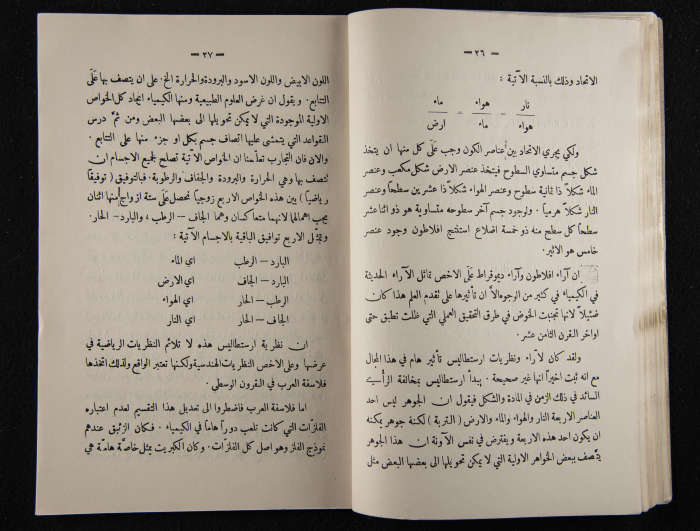 — ٢٦ —
الاتحاد وذلك بالنسبة الآتية :
نار هواء ماء
— = — = —
هواء ماء ارض
ولكي يجري الاتحاد بين عناصر الكون وجب عَلَى كل منها ان يتخذ
شكل جسم متساوي السطوح فيتخذ عنصر الارض شكل مكعب وعنصر
الماء شكلاً ذا ثمانية سطوح وعنصر الهواء شكلاً ذا عشرين سطحاً وعنصر
النار شكلاً هرمياً . ولوجود جسم آخر سطوحه متساوية هو ذو اثنا عشر
سطحاً كل سطح منه ذو خمسة اضلاع استنتج افلاطون وجود عنصر
خامس هو الاثير .
ان آراء افلاطون وآراء ديموقراط عَلَى الاخص تماثل الآراء الحديثة
في الكيمياء في كثير من الوجوه الاَّ ان تأثيرها عَلَى تقدم العلم هذا كان
ضئيلاً لانها تجنبت الخوض في طرق التحقيق العملي التي ظلت تطبق حتى
اواخر القرن الثامن عشر .
ولقد كان لآراء ونظريات ارسطاليس تأثير هام في هذا المجال
مع انه ثبت اخيراً انها غير صحيحة . يبدأ ارسطاليس بمخالفة الرأي
السائد في ذلك الزمن في المادة والشكل فيقول ان الجوهر ليس احد
العناصر الاربعة النار والهواء والماء والارض ( التربة ) لكنه جوهر يمكنه
ان يكون احد هذه الاربعة ويفترض في نفس الآونة ان هذا الجوهر
يتصف ببعض الخواهر الاولية التي لا يمكن تحويلها الى بعضها البعض مثل
— ٢٧ —
اللون الابيض واللون الاسود والبرودة والحرارة الخ . على ان يتصف بها عَلَى
التتابع . ويقول ان غرض العلوم الطبيعية ومنها الكيمياء ايجاد كل الخواص
الاولية الموجودة التي لا يمكن تحويلها الى بعضها البعض ومن ثمَّ درس
القواعد التي يتمشى عليها اتصاف جسم بكل او جزء منها على التتابع .
والان فان التجارب تعلمنا ان الخواص الآتية تصلح لجميع الاجسام ان
تتصف بها وهي الحرارة والبرودة والجفاف والرطوبة . فبالتوفيق ( توفيقاً
رياضياً ) بين هذه الخواص الاربع زوجياً نحصل عَلَى ستة ازواج أمنها اثنان
يجب اهمالها لانهما متعاكسان وهما الجاف — الرطب ، والبارد — الحار .
وتمثل الاربع توافيق الباقية بالاجسام الآتية :
البارد — الرطب اي الماء
البارد — الجاف اي الارض
الرطب — الحار اي الهواء
الجاف — الحار اي النار
ان نظرية ارسطاليس هذه لا تلائم النظريات الرياضية في
عرضها وعلى الاخص النظريات الهندسية ولكنها تعتبر الواقع ولذلك اتخذها
فلاسفة العرب في القرون الوسطى .
اما فلاسفة العرب فاضطروا الى تعديل هذا التقسيم لعدم اعتباره
الفلزات التي كانت تلعب دوراً هاماً في الكيمياء . فكان الزئبق عندهم
نموذج الفلز وهو اصل كل الفلزات . وكان الكبريت يمثل خاصَّة هامَّة هي